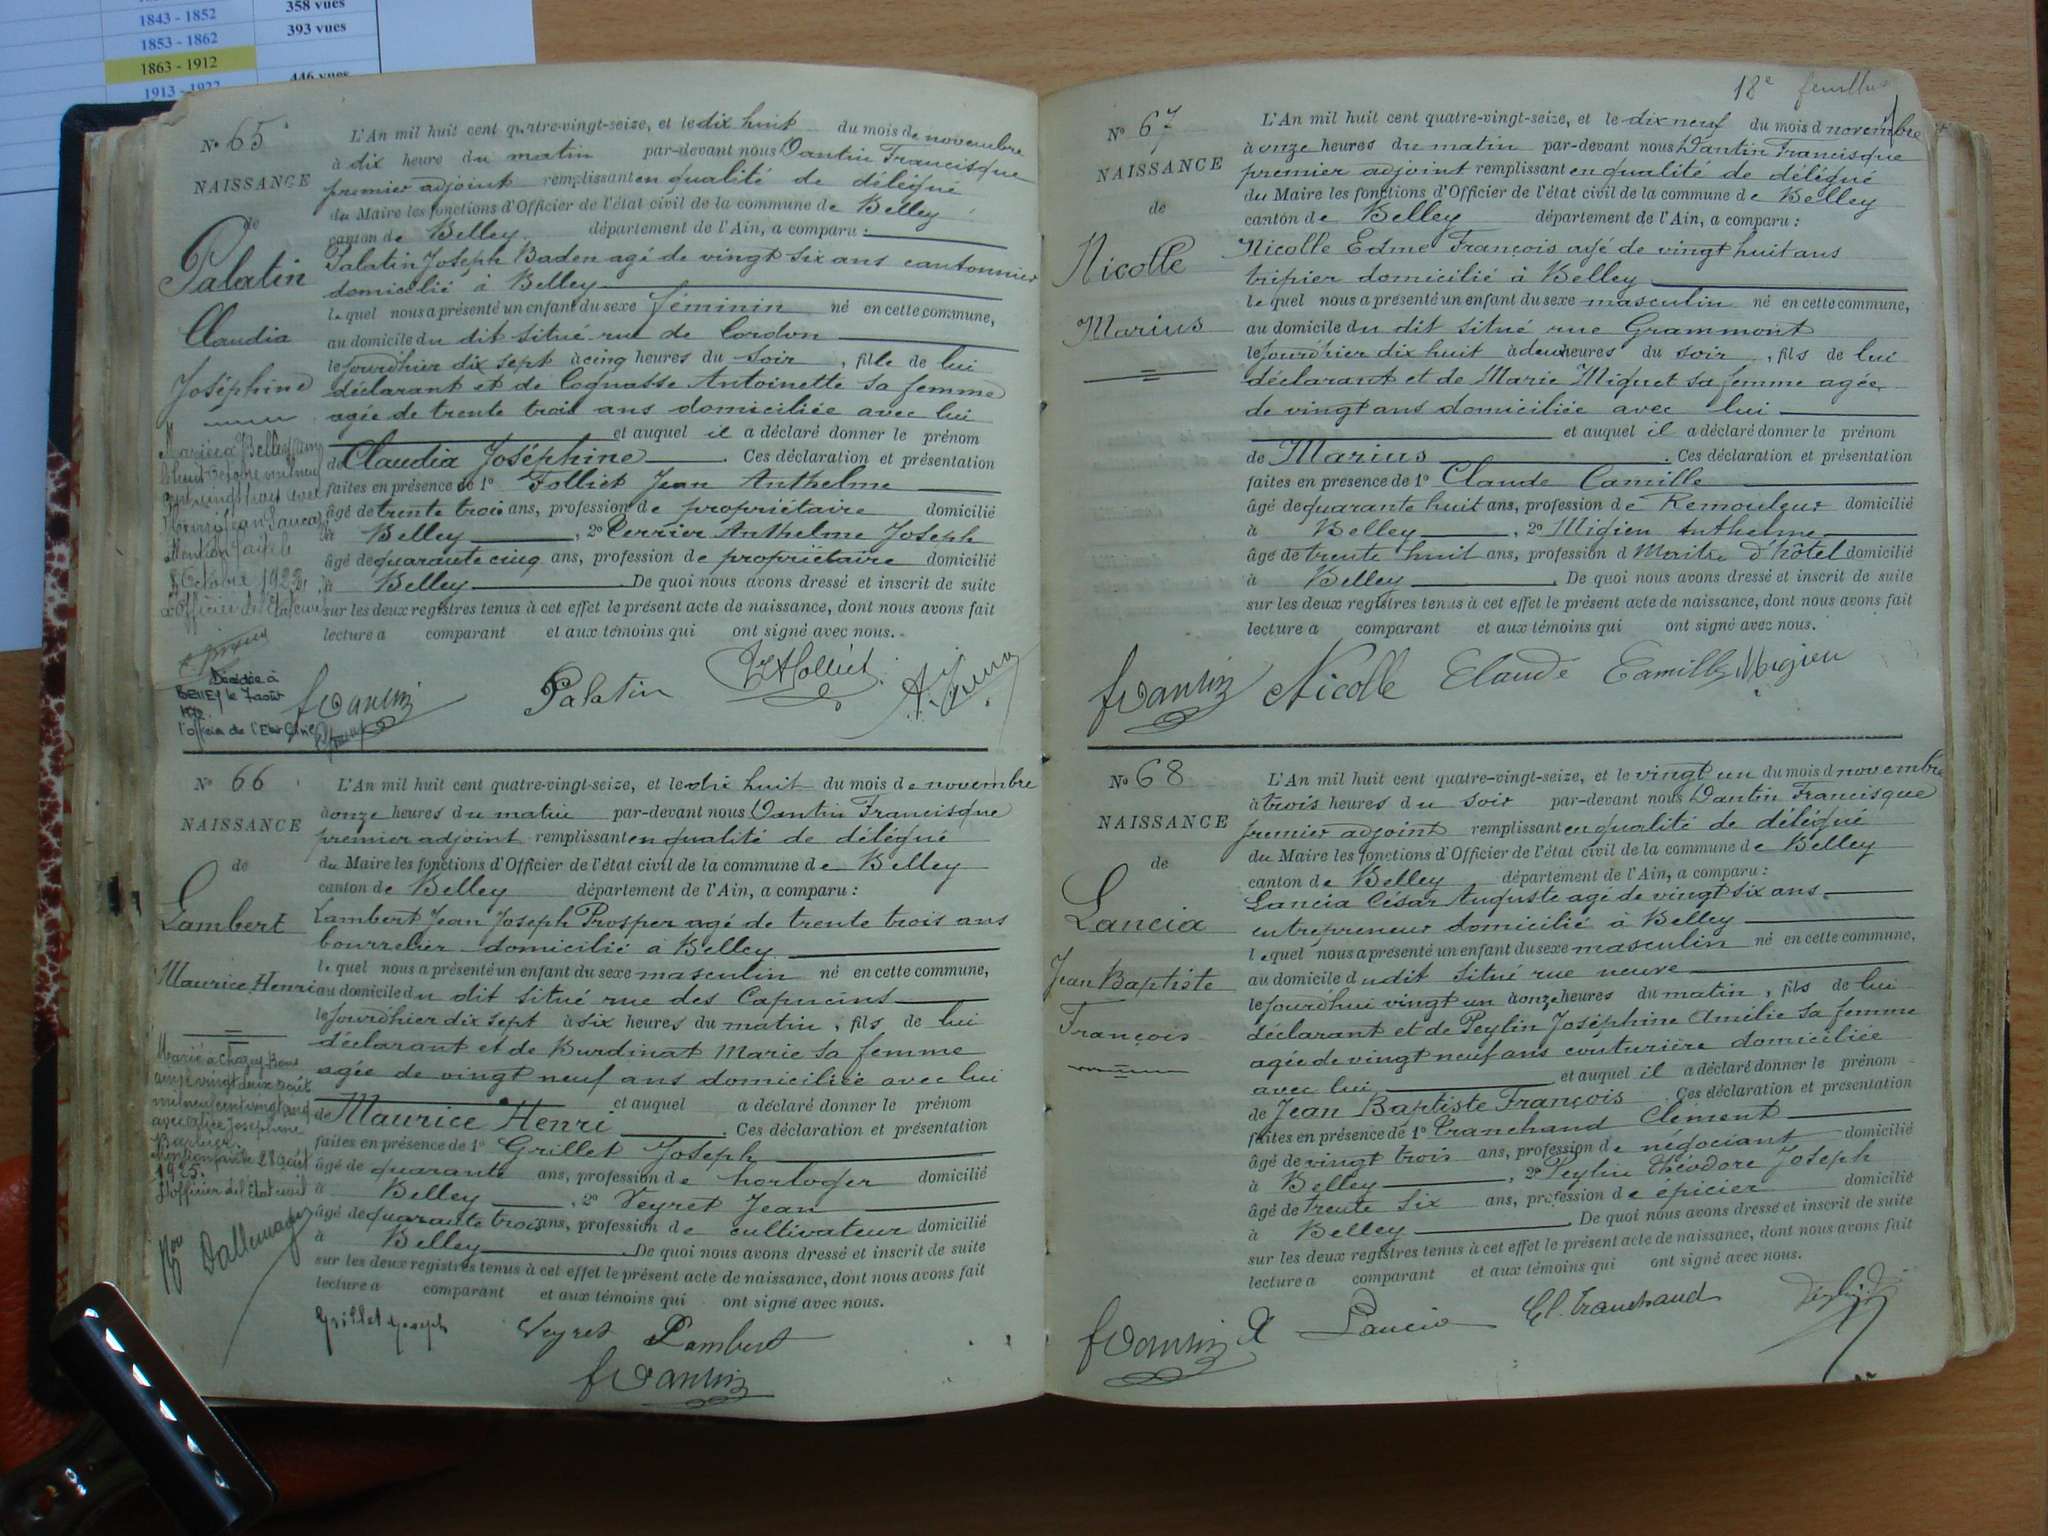 358 vues
1843 - 1852
393 vues
1853 - 1862
1863 - 1912
446 vues
1913 - 1922
No 65
NAISSANCE
de
Palatin
Claudia
Joséphine
L'An mil huit cent quatre-vingt-seize, et le dix huit du mois de novembre
à dix heure du matin par-devant nous Dantin Francisque
premier adjoint remplissant en qualité de délégué
du Maire les fonctions d'Officier de l'état civil de la commune de Belley
canton de Belley département de l'Ain, a comparu :
Palatin Joseph Baden agé de vingt six ans cantonnier
domicilié à Belley
le quel nous a présenté un enfant du sexe féminin né en cette commune,
au domicile du dit situé rue de Cordon
le jourd'hier dix sept à cinq heures du soir, fille de lui
déclarant et de Cognasse Antoinette sa femme
agée de trente trois ans domiciliée avec lui
et auquel il a déclaré donner le prénom
de Claudia Joséphine. Ces déclaration et présentation
faites en présence de 1° Folliet Jean Anthelme
âgé de trente trois ans, profession de propriétaire domicilié
à Belley, 2° Perrier Anthelme Joseph
âgé de quarante cinq ans, profession de propriétaire domicilié
à Belley De quoi nous avons dressé et inscrit de suite
sur les deux registres tenus à cet effet le présent acte de naissance, dont nous avons fait
lecture a comparant et aux témoins qui ont signé avec nous.
Mention faite le
8 Octobre 1923
L'officier de l'Etat civil
Décédée à
BELLEY le 7 août
l'officier de l'Etat Civil
fDantin Palatin Folliet
No 66
NAISSANCE
de
Lambert
Maurice Henri
L'An mil huit cent quatre-vingt-seize, et le dix huit du mois de novembre
à onze heures du matin par-devant nous Dantin Francisque
premier adjoint remplissant en qualité de délégué
du Maire les fonctions d'Officier de l'état civil de la commune de Belley
canton de Belley département de l'Ain, a comparu :
Lambert Jean Joseph Prosper agé de trente trois ans
bourrelier domicilié à Belley
le quel nous a présenté un enfant du sexe masculin né en cette commune,
au domicile du dit situé rue des Capucins
le jourd'hier dix sept à six heures du matin, fils de lui
déclarant et de Burdinat Marie sa femme
agée de vingt neuf ans domiciliée avec lui
et auquel a déclaré donner le prénom
de Maurice Henri. Ces déclaration et présentation
faites en présence de 1° Grillet Joseph
âgé de quarante ans, profession de horloger domicilié
à Belley, 2° Veyret Jean
âgé de quarante trois ans, profession de cultivateur domicilié
à Belley De quoi nous avons dressé et inscrit de suite
sur les deux registres tenus à cet effet le présent acte de naissance, dont nous avons fait
lecture a comparant et aux témoins qui ont signé avec nous.
avec Alice Joséphine
Mention faite 28 août
1925.
L'officier de l'Etat civil
Dallemagne
Grillet Joseph Veyret Lambert
fDantin
18e feuillet
No 67
NAISSANCE
de
Nicolle
Marius
L'An mil huit cent quatre-vingt-seize, et le dix neuf du mois d novembre
à onze heures du matin par-devant nous Dantin Francisque
premier adjoint remplissant en qualité de délégué
du Maire les fonctions d'Officier de l'état civil de la commune de Belley
canton de Belley département de l'Ain, a comparu :
Nicolle Edme François agé de vingt huit ans
tripier domicilié à Belley
le quel nous a présenté un enfant du sexe masculin né en cette commune,
au domicile du dit situé rue Grammont
le jourd'hier dix huit à deux heures du soir, fils de lui
déclarant et de Marie Miquet sa femme agée
de vingt ans domiciliée avec lui
et auquel il a déclaré donner le prénom
de Marius. Ces déclaration et présentation
faites en présence de 1° Claude Camille
âgé de quarante huit ans, profession de Remouleur domicilié
à Belley, 2° Migieu Anthelme
âgé de trente huit ans, profession d Maitre d'hôtel domicilié
à Belley. De quoi nous avons dressé et inscrit de suite
sur les deux registres tenus à cet effet le présent acte de naissance, dont nous avons fait
lecture a comparant et aux témoins qui ont signé avec nous.
fDantin Nicolle Claude Camille Migieu
No 68
NAISSANCE
de
Lancia
Jean Baptiste
François
L'An mil huit cent quatre-vingt-seize, et le vingt un du mois d novembre
à trois heures du soir par-devant nous Dantin Francisque
premier adjoint remplissant en qualité de délégué
du Maire les fonctions d'Officier de l'état civil de la commune de Belley
canton de Belley département de l'Ain, a comparu :
Lancia César Auguste agé de vingt six ans
entrepreneur domicilié à Belley
le quel nous a présenté un enfant du sexe masculin né en cette commune,
au domicile du dit situé rue neuve
le jourd'hui vingt un à onze heures du matin, fils de lui
déclarant et de Peylin Joséphine Amélie sa femme
agée de vingt neuf ans couturière domiciliée
avec lui et auquel il a déclaré donner le prénom
de Jean Baptiste François. Ces déclaration et présentation
faites en présence de 1° Tranchand Clément
âgé de vingt trois ans, profession de négociant domicilié
à Belley, 2° Peylin Théodore Joseph
âgé de trente six ans, profession de épicier domicilié
à Belley. De quoi nous avons dressé et inscrit de suite
sur les deux registres tenus à cet effet le présent acte de naissance, dont nous avons fait
lecture a comparant et aux témoins qui ont signé avec nous.
fDantin Lancia Cl. Tranchand